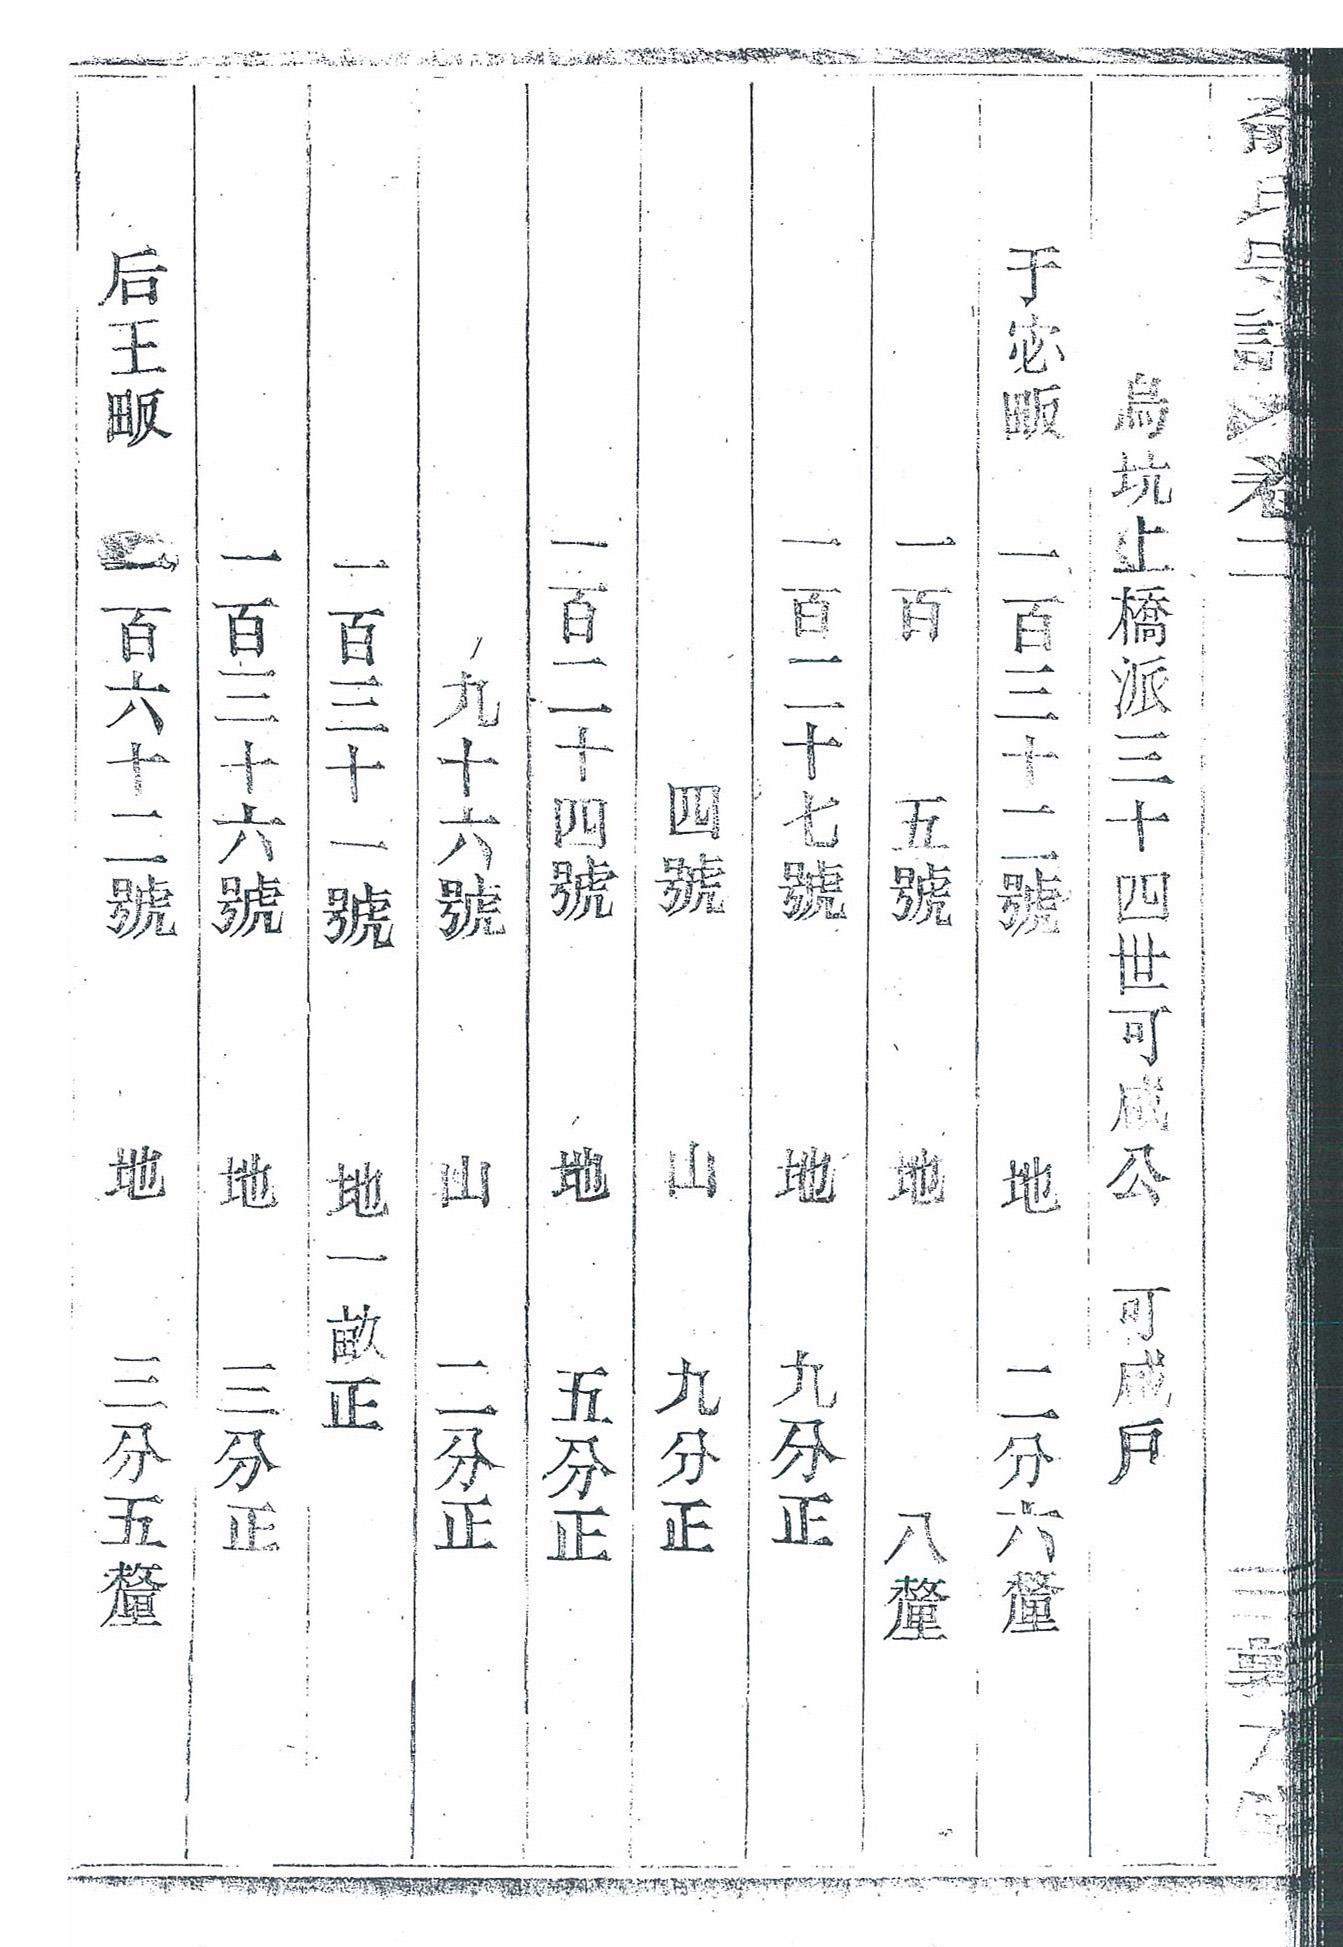 氏宗譜 卷二
烏坑上橋派三十四世可成公 可成戶
于宓畈 一百三十二號 地 二分六釐
一百 五號 地 八釐
一百二十七號 地 九分正
四號 山 九分正
一百二十四號 地 五分正
九十六號 山 二分正
一百三十一號 地一畝正
一百三十六號 地 三分正
后王畈 一百六十二號 地 三分五釐